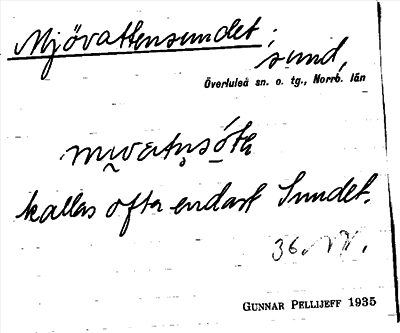 Mjövattensundet;
sund,
Överluleå sn. o. tg., Norrb. län
kallas ofta endast Sundet.
GUNNAR PELLIJEFF 1935